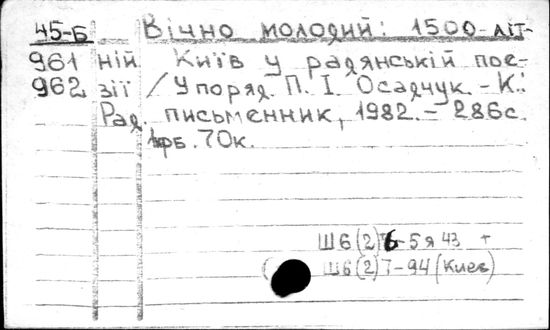 45-Б Вічно молодий: 1500-літ-
961 ній Київ у радянській пое-
962 зії / Упоряд. П. І. Осадчук. - К.:
Рад. письменник, 1982. - 286с.
1крб. 70к.
Ш6(2)6-5я43 +
Ш6(2)7-94 (Киев)